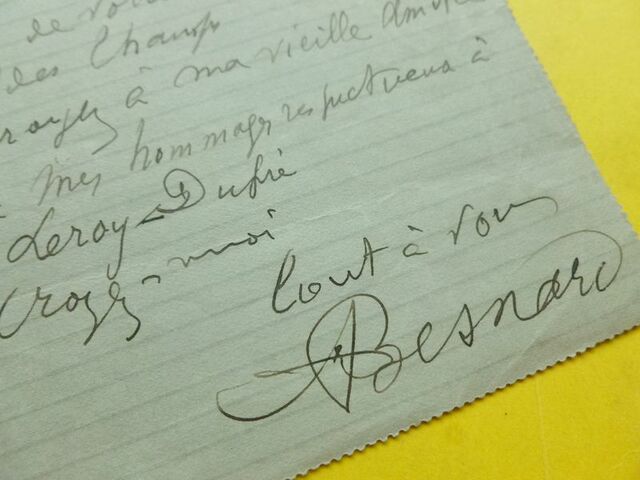 de
des Champs
à ma vieille
mes hommages respectueux à
Leroy-Dupré
Croyez-moi
tout à vous
ABesnard